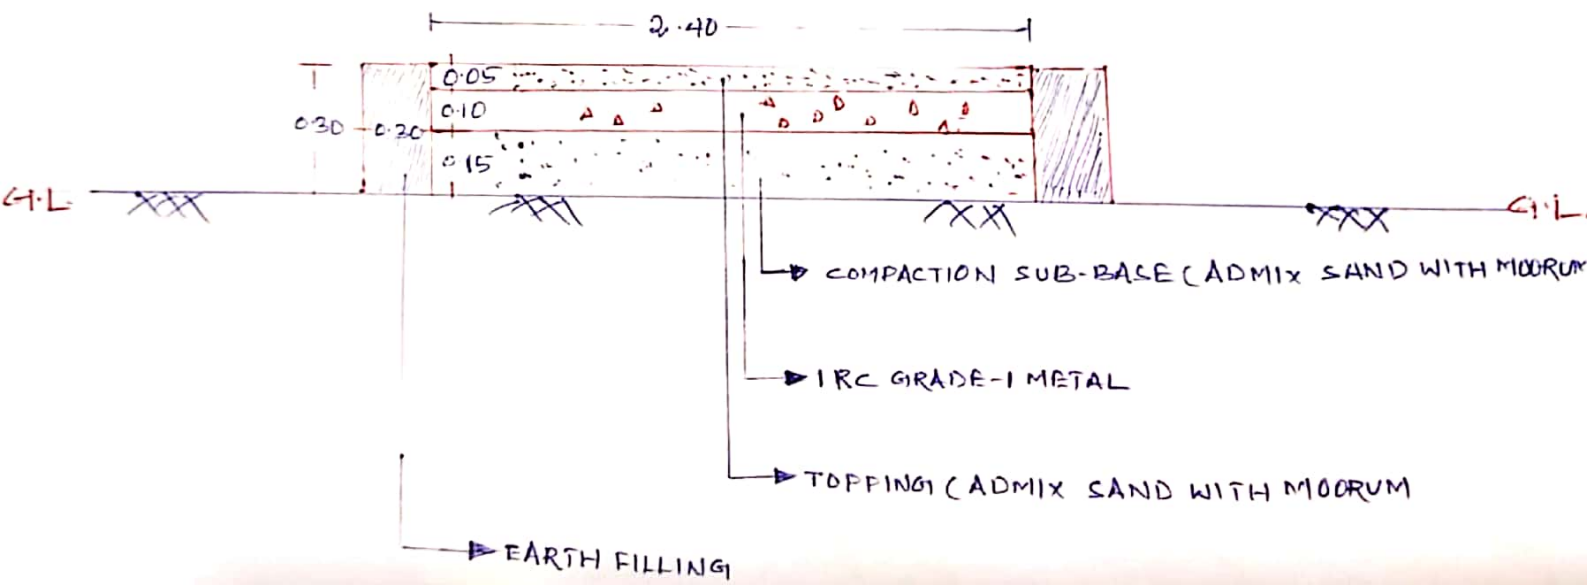 2.40
0.05
0.10
0.30 0.20
0.15
G.L. G.L.
COMPACTION SUB-BASE (ADMIX SAND WITH MOORUM
IRC GRADE-I METAL
TOPPING (ADMIX SAND WITH MOORUM
EARTH FILLING